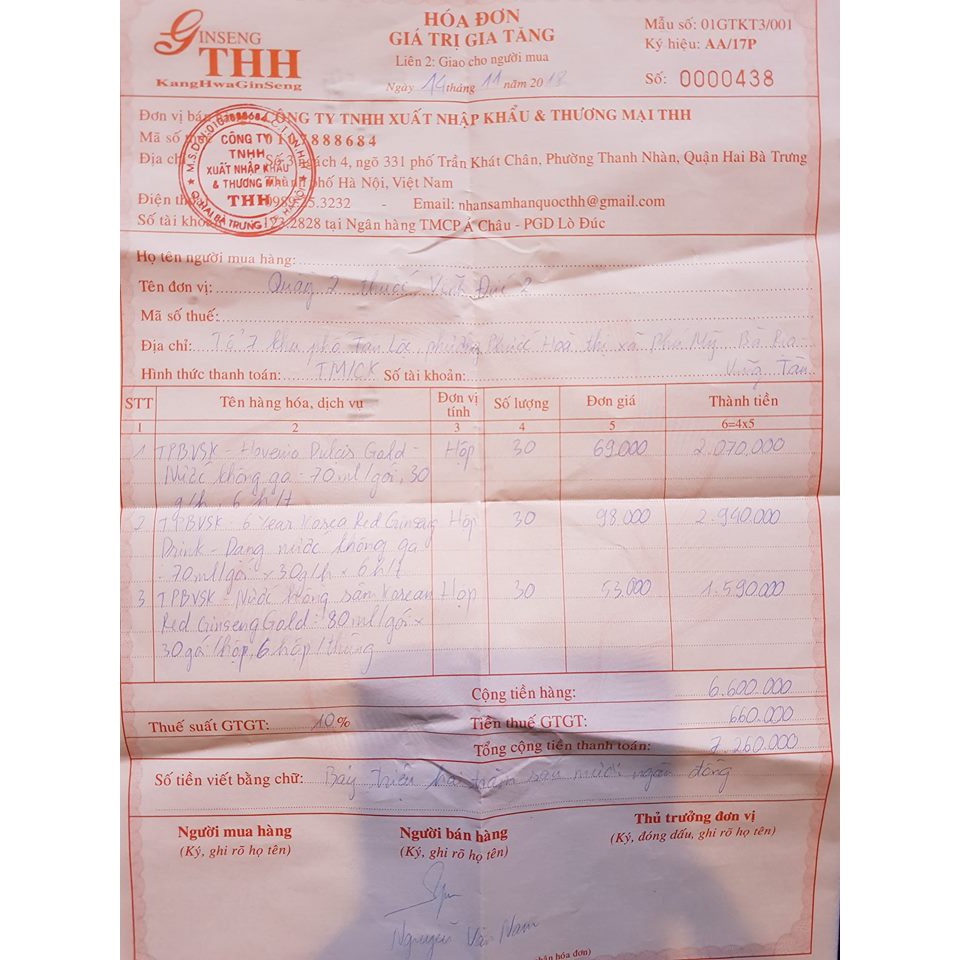 GINSENG
THH
KangHwaGinSeng
HÓA ĐƠN
GIÁ TRỊ GIA TĂNG
Liên 2: Giao cho người mua
Ngày 14 tháng 11 năm 2018
Mẫu số: 01GTKT3/001
Ký hiệu: AA/17P
Số: 0000438
Đơn vị bán CÔNG TY TNHH XUẤT NHẬP KHẨU & THƯƠNG MẠI THH
Mã số 0107888684
Địa chỉ Số 3 ngách 4, ngõ 331 phố Trần Khát Chân, Phường Thanh Nhàn, Quận Hai Bà Trưng
Thành phố Hà Nội, Việt Nam
Điện 3232 - Email: nhansamhanquocthh@gmail.com
Số tài 2828 tại Ngân hàng TMCP Á Châu - PGD Lò Đúc
CÔNG TY
TNHH
XUẤT NHẬP KHẨU
& THƯƠNG MẠI
THH
Họ tên người mua hàng:
Tên đơn vị: Quầy thuốc 2
Mã số thuế:
Địa chỉ: Tổ 7 khu phố Tân Lộc, phường Phước Hoà thị xã Phú Mỹ Bà Rịa-
Vũng Tàu
Hình thức thanh toán: TM/CK Số tài khoản:
STT Tên hàng hóa, dịch vụ Đơn vị tính Số lượng Đơn giá Thành tiền
1 2 3 4 5 6=4x5
1 TPBVSK - Hovenia Dulcis Gold - Hộp 30 69.000 2.070.000
Nước không ga - 70ml/gói, 30
g/h, 6 h/t
2 TPBVSK - 6 Year Korea Red Ginseng Hộp 30 98.000 2.940.000
Drink - Dạng nước không ga
- 70ml/gói x 30g/h x 6h/t
3 TPBVSK - Nước hồng sâm Korean Hộp 30 53.000 1.590.000
Red Ginseng Gold - 80ml/gói x
30gói/hộp, 6 hộp/thùng
Cộng tiền hàng: 6.600.000
Thuế suất GTGT: 10% Tiền thuế GTGT: 660.000
Tổng cộng tiền thanh toán: 7.260.000
Số tiền viết bằng chữ: Bảy triệu hai trăm sáu mươi ngàn đồng
Người mua hàng Người bán hàng Thủ trưởng đơn vị
(Ký, ghi rõ họ tên) (Ký, ghi rõ họ tên) (Ký, đóng dấu, ghi rõ họ tên)
Nguyễn Văn Nam
nhận hóa đơn)